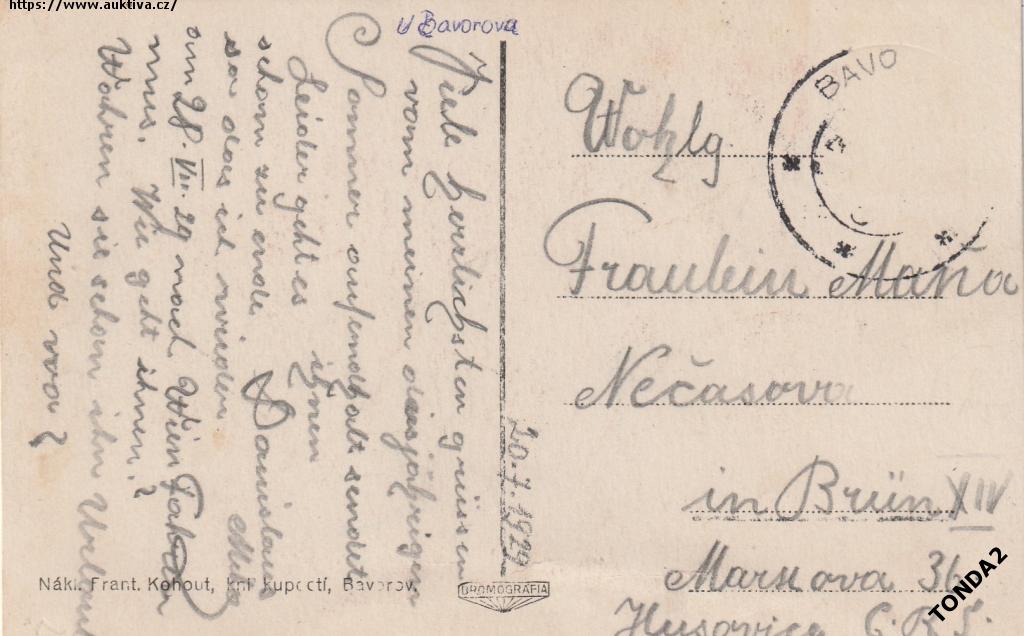 https://www.auktiva.cz/
u Bavorova
Viele herzlichsten grüssen
vom meinen diesjährigen
Sommer aufendhalt sendet
ihnen
Leider geht es
schom zu ende
so das ich wieder
am 28. VII. 29 nach Wien Fahren
mus. Wie geht ihnen?
Wahren sie schon ihn
Und wo?
20.7.1929
BAVO
Wohlg.
Fraulein Maňa
Nečasova
in Brün XIV
36
Husovice Č.R.S.
Nákl. Frant. Kohout, knihkupectí, Bavorov.
GROMOGRAFIA
TONDA2